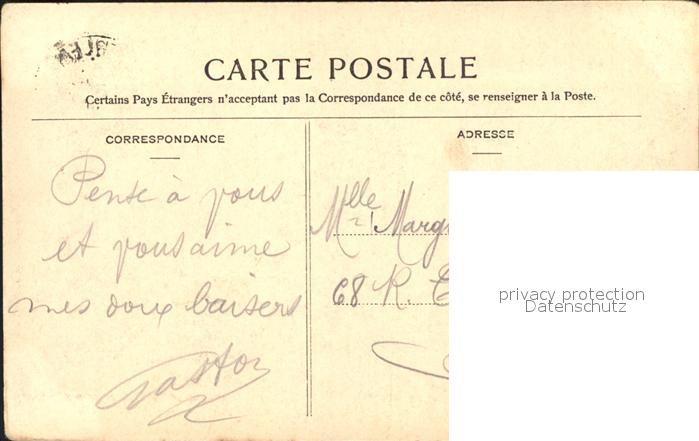 CARTE POSTALE
Certains Pays Étrangers n'acceptant pas la Correspondance de ce côté, se renseigner à la Poste.
CORRESPONDANCE
Pense à vous
et vous aime
mes doux baisers
Gaston
ADRESSE
Mlle Marg
68 R.
privacy protection
Datenschutz